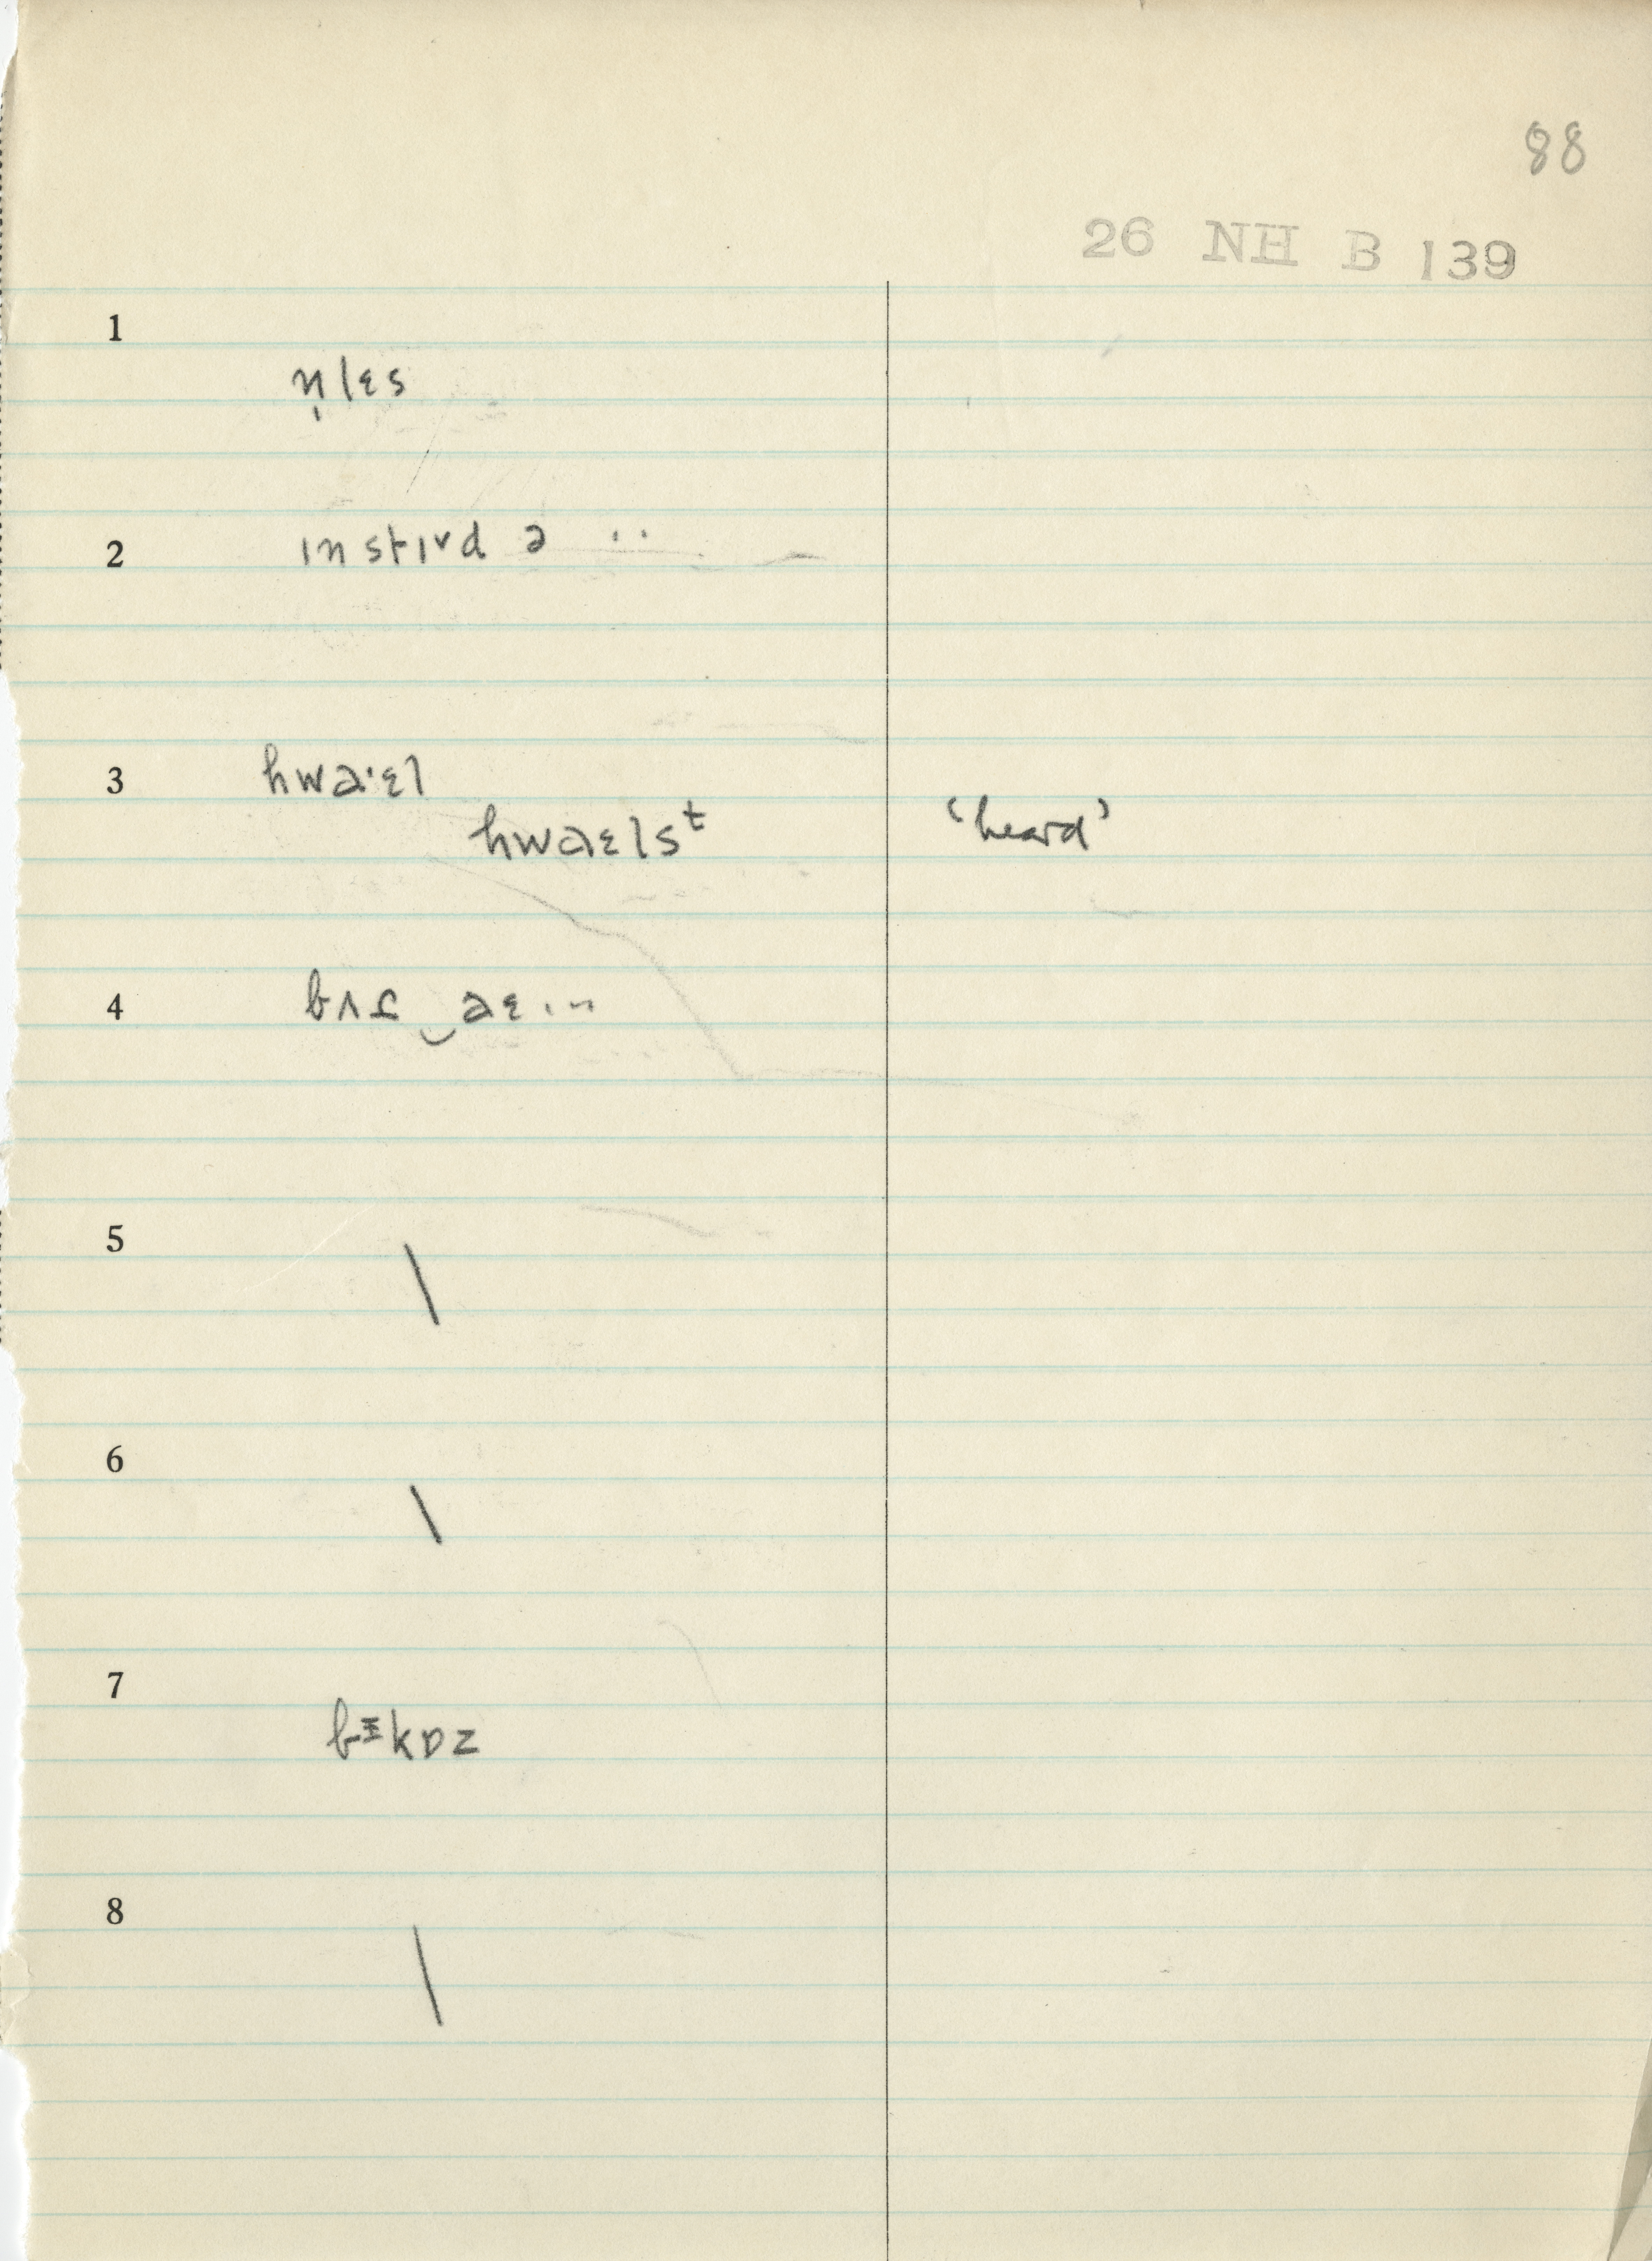 88
26 NH B 139
1
n̩lɛs
2
ɪnstɪˬd ə ..
3
hwaˑɛl
hwaɛlsᵗ
‘heard’
4
aɛ ...
5
\
6
\
7
bɪkɒz
8
\